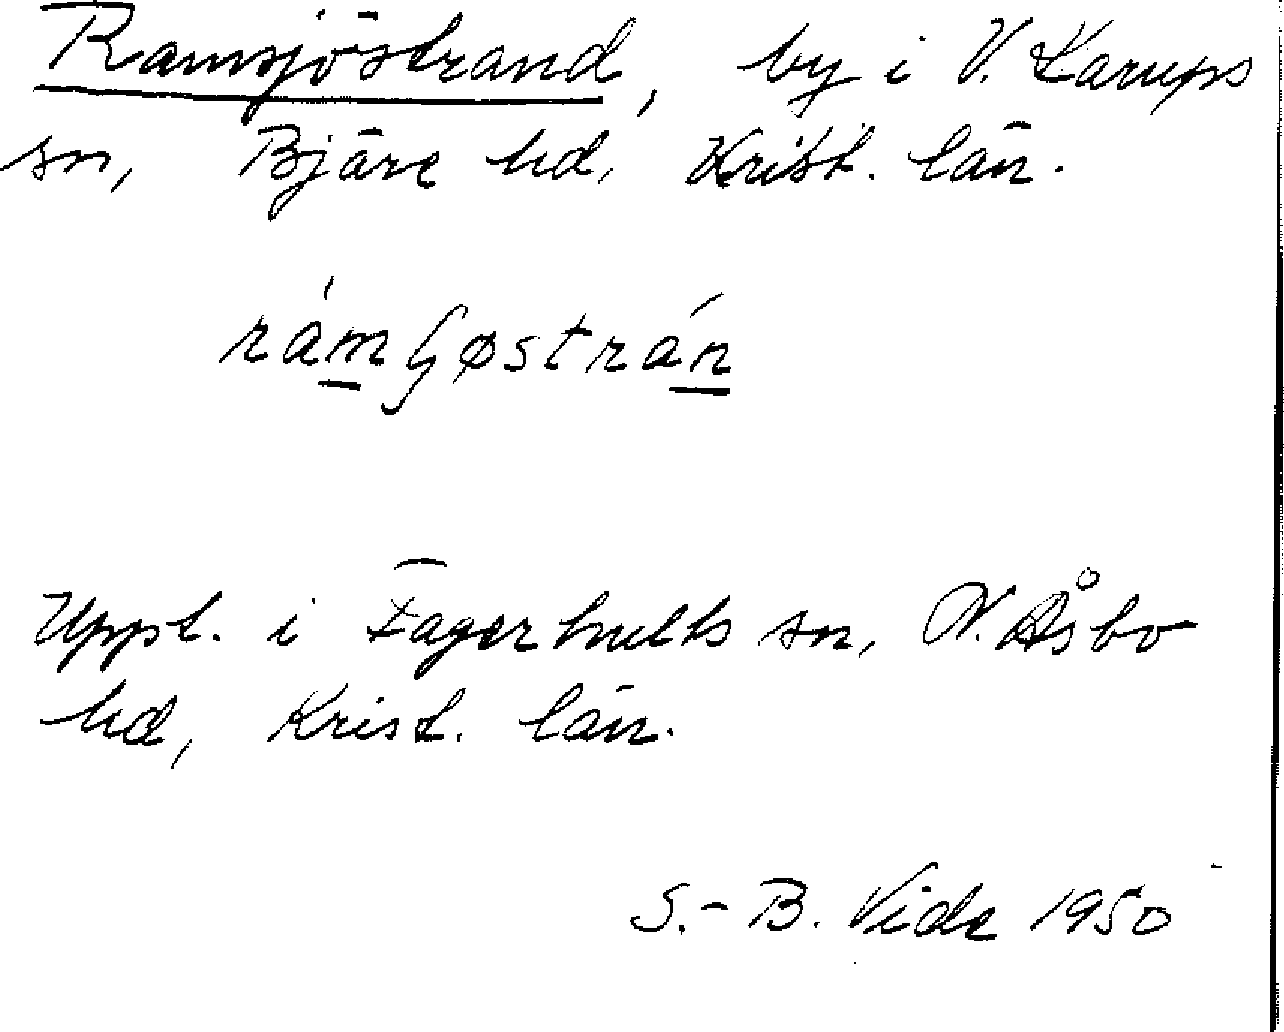 Ramsjöstrand, by i V. Karups
sn, Bjäre hd, Krist. län.
rámʃøstrán
Uppt. i Fagerhults sn, N. Åsbo
hd, Krist. län.
S.-B. Vide 1950